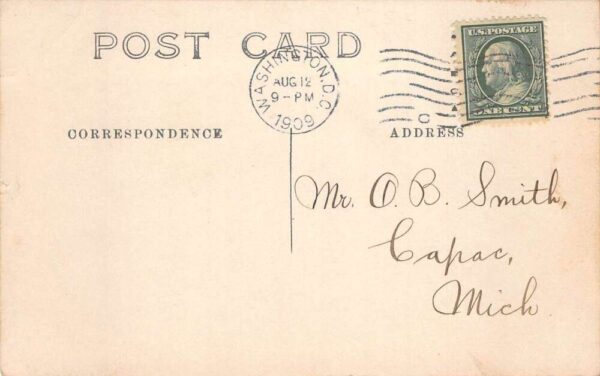 POST CARD
WASHINGTON, D.C.
AUG 12
9-PM
1909
U.S. POSTAGE
ONE CENT
CORRESPONDENCE
ADDRESS
Mr. O. B. Smith,
Capac,
Mich